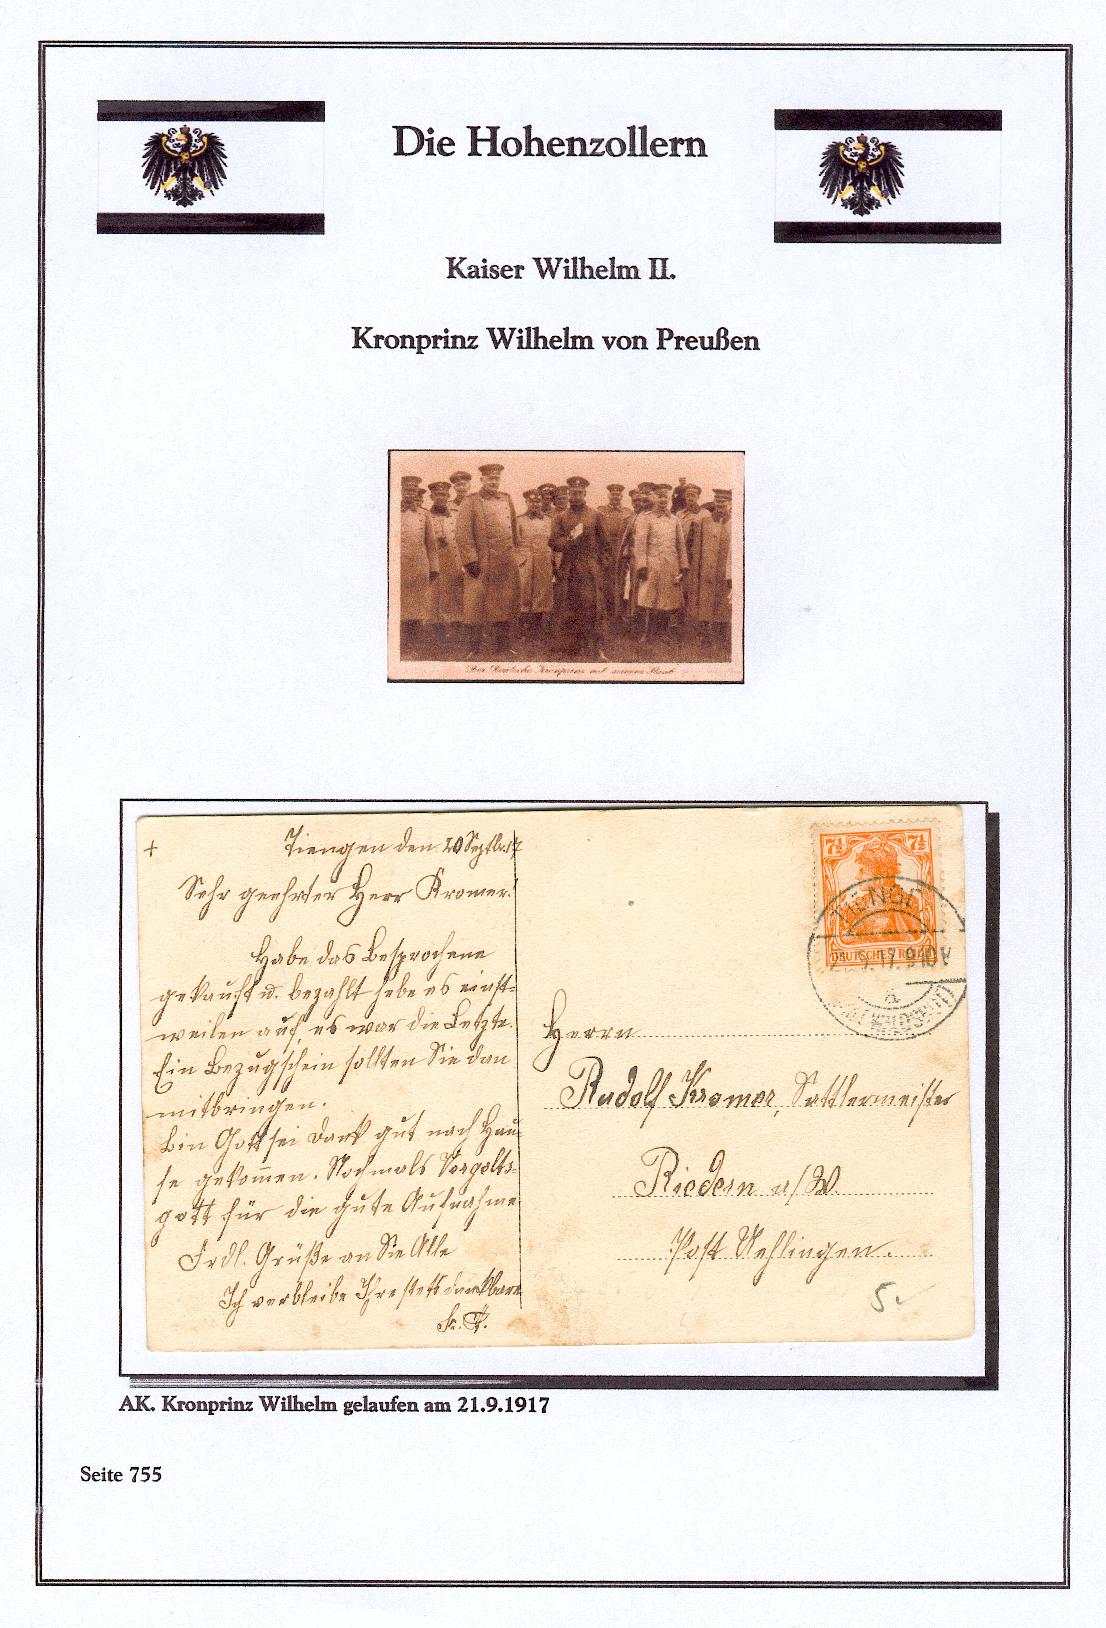 Die Hohenzollern
Kaiser Wilhelm II.
Kronprinz Wilhelm von Preußen
Der Deutsche Kronprinz mit seinem Stab
+
Tiengen den 20 Septbr 17
Sehr geehrter Herr Kromer!
Habe das Besprochene
gekauft u. bezahlt hebe es einst-
weilen auf, es war die Letzte.
Ein Bezugschein sollten Sie dan
mitbringen.
Bin Gott sei Dank gut nach Hau-
se gekom̄en. Nochmals Vergelts-
gott für die gute Aufnahme
Frdl. Grüße an Sie Alle
Ich verbleibe Ihre stets dankbare
7½ 7½
DEUTSCHES REICH
TIENGEN
9.17. 9-10V
a
(WALDSHUT)
Herrn
Rudolf Kromer, Sattlermeister
Riedern a/W.
Post Uehlingen.
5.-
AK. Kronprinz Wilhelm gelaufen am 21.9.1917
Seite 755